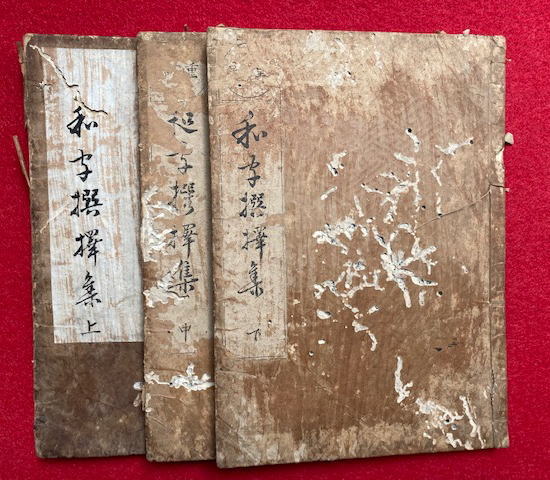 和字撰擇集 上
和字撰擇集 中
和字撰擇集 下